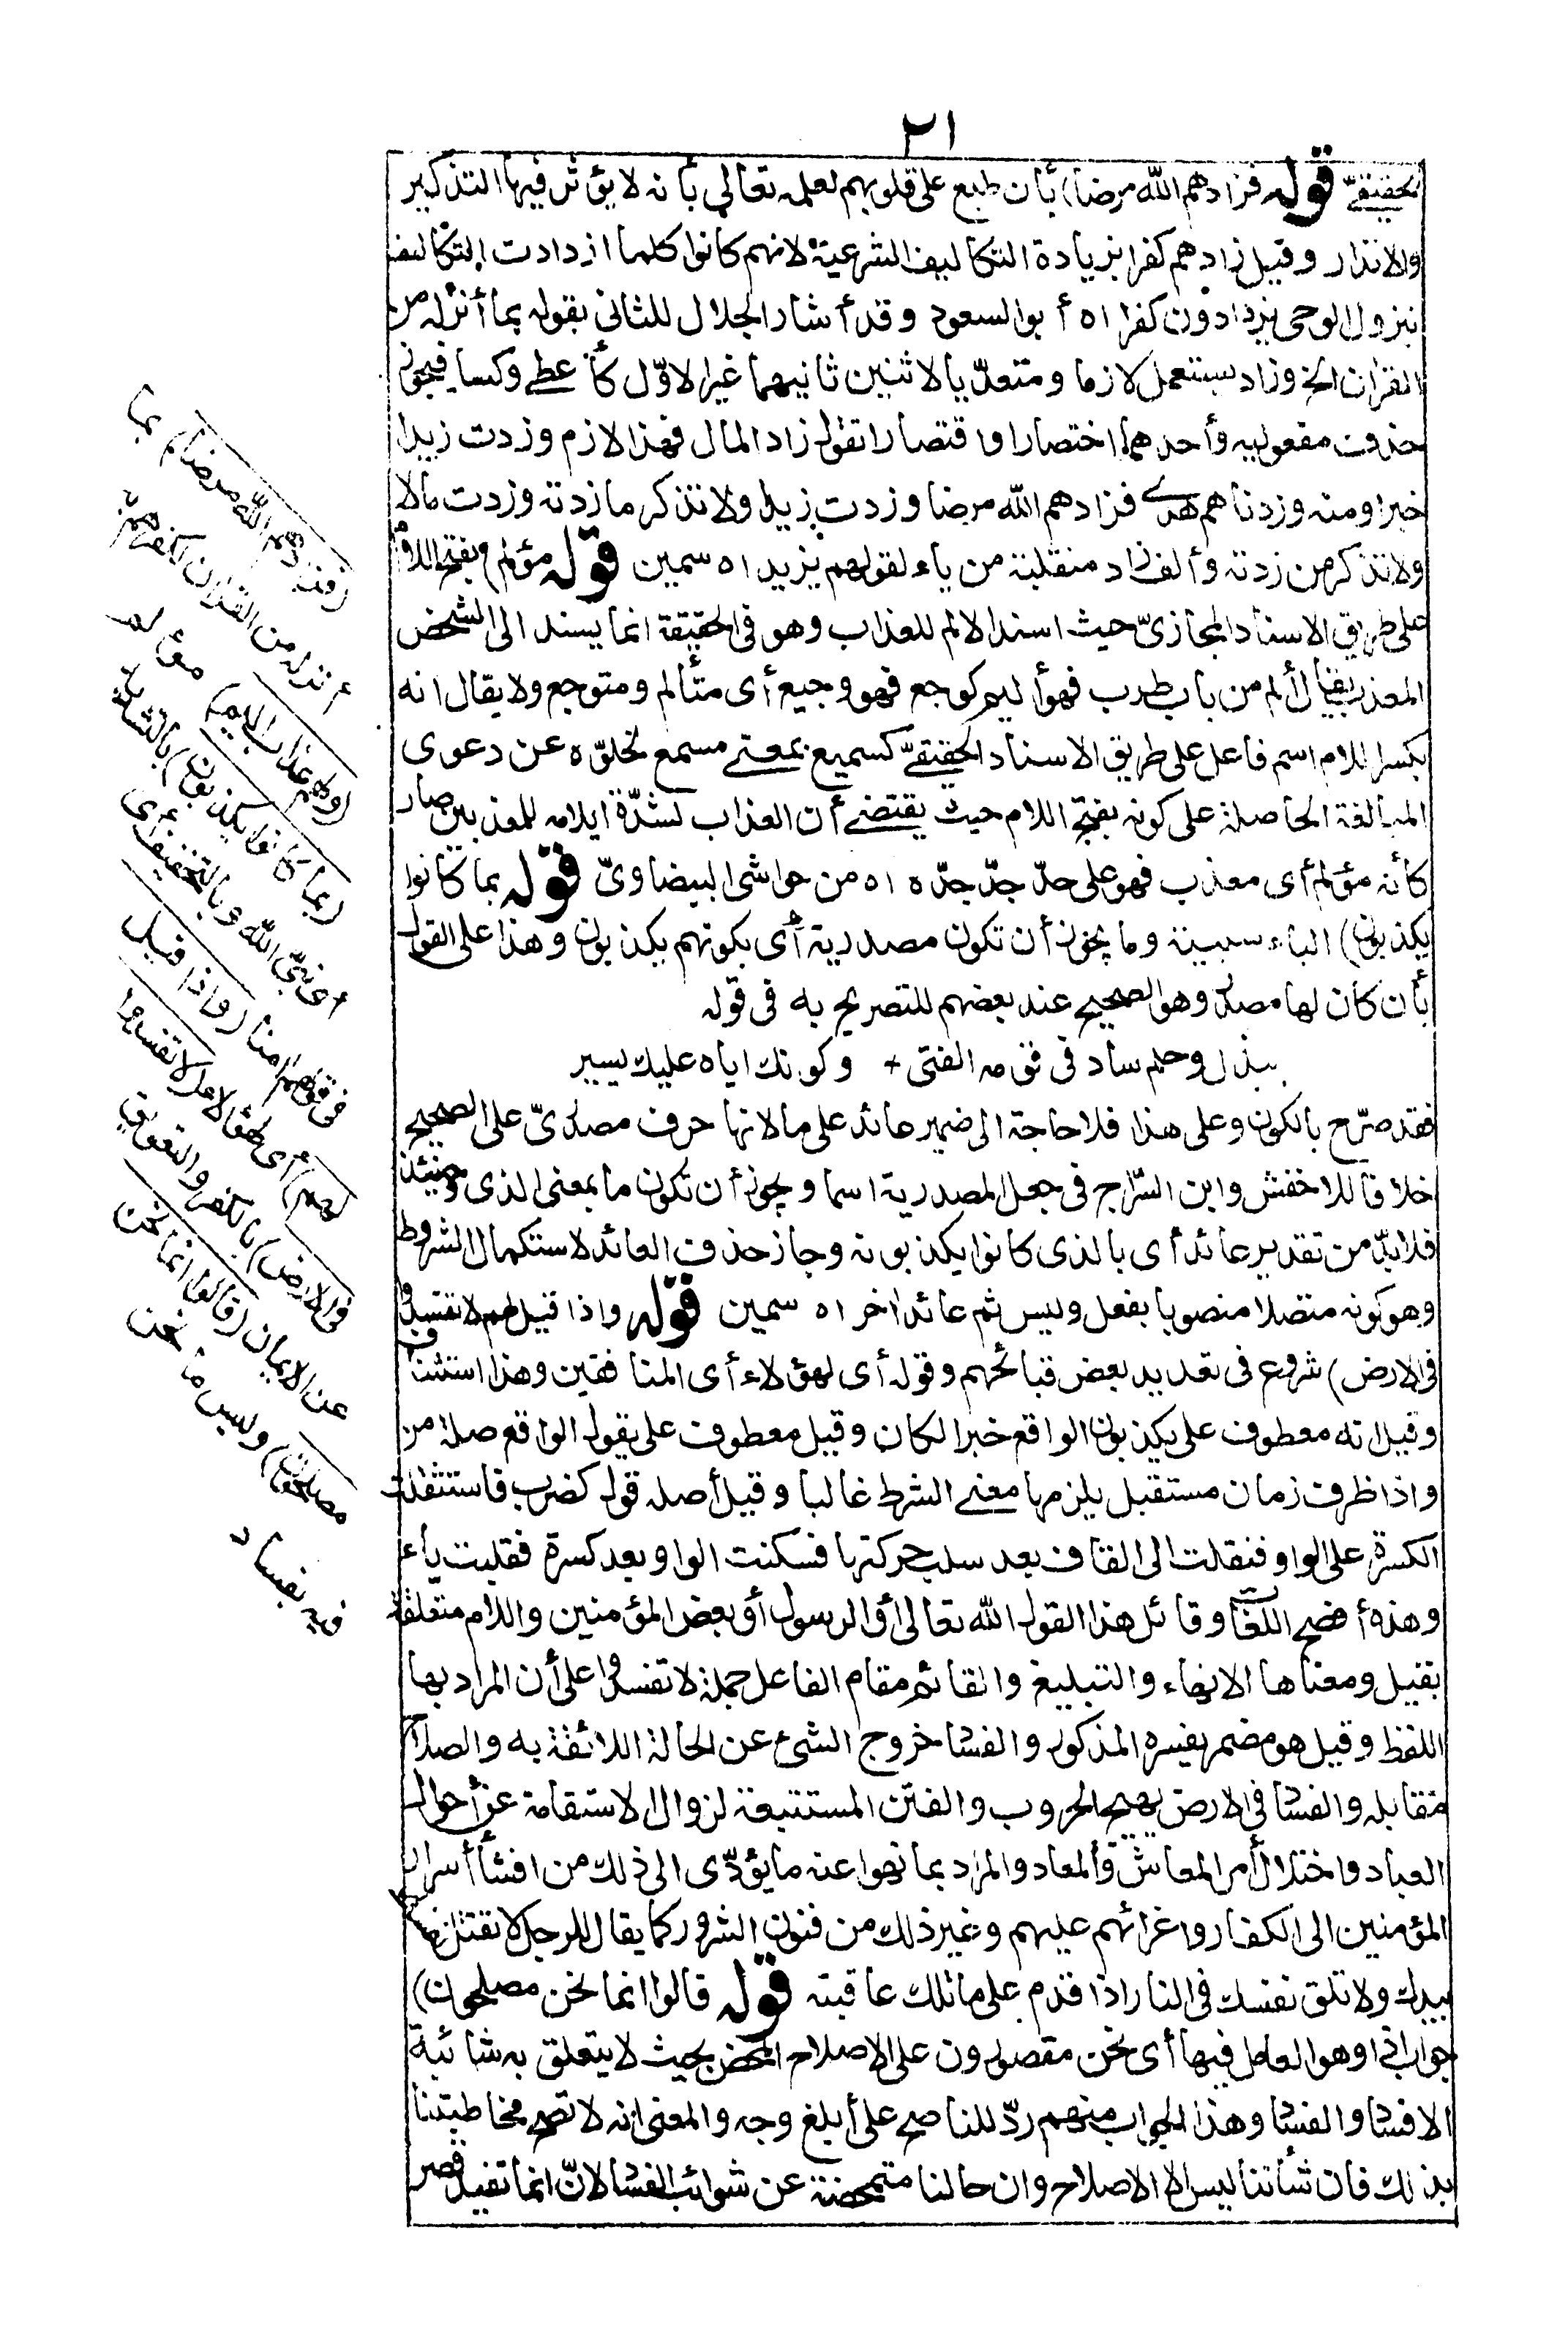 ٢١
تحقيقيّ قوله فزادهم الله مرضا) بأن طبع على قلوبهم لعلمه تعالى بأنه لا يؤثر فيها التذكير
والانذار وقيل زادهم كفرا بزيادة التكاليف الشرعية لانهم كانوا كلما ازدادت التكاليف
بنزول الوحى يزدادون كفرا اه أبو السعود وقد أشار الجلال للثانى بقوله بما أنزله من
القران الخ وزاد يستعمل لازما ومتعدّيا لاثنين ثانيهما غير الاوّل كأعطى وكسا فيجوز
حذف مفعوليه وأحدهما اختصارا واقتصارا تقول زاد المال فهذا لازم وزدت زيدا
خيرا ومنه وزدناهم هدى فزادهم الله مرضا وزدت زيدا ولا تذكر ما زدته وزدت مالا
ولا تذكر من زدته وألف زاد منقلبة من ياء لقولهم يزيد اه سمين قوله مؤلم) بفتح اللام
على طريق الاسناد المجازىّ حيث اسند الالم للعذاب وهو فى الحقيقة انما يسند الى الشخص
المعذب يقال ألم من باب طرب فهو أليم كوجع فهو وجيع أى متألم ومتوجع ولا يقال انه
بكسر اللام اسم فاعل على طريق الاسناد الحقيقىّ كسميع بمعنى مسمع لخلوّه عن دعوى
المبالغة الحاصلة على كونه بفتح اللام حيث يقتضى أن العذاب لشدّة ايلامه للمعذبين صار
كأنه مؤلم أى معذب فهو على حدّ جدّ جدّه اه من حواشى البيضاوىّ قوله بما كانوا
يكذبون) الباء سببية وما يجوز أن تكون مصدرية أى بكونهم يكذبون وهذا على القول
بأن كان لها مصدر وهو الصحيح عند بعضهم للتصريح به فى قوله
ببذل وحلم ساد فى قومه الفتى + وكونك اياه عليك يسير
فقد صرّح بالكون وعلى هذا فلا حاجة الى ضمير عائد على ما لانها حرف مصدرىّ على الصحيح
خلافا للاخفش وابن السرّاج فى جعل المصدرية اسما ويجوز أن تكون ما بمعنى الذى وحينئذ
فلا بدّ من تقدير عائد أى بالذى كانوا يكذبونه وجاز حذف العائد لاستكمال الشروط
وهو كونه متصلا منصوبا بفعل وليس ثم عائد اخر اه سمين قوله واذا قيل لهم لا تفسدوا
فى الارض) شروع فى تعديد بعض قبائحهم وقوله أى لهؤلاء أى المنافقين وهذا استئناف
وقيل انه معطوف على يكذبون الواقع خبرا لكان وقيل معطوف على يقول الواقع صلة من
واذا ظرف زمان مستقبل يلزمها معنى الشرط غالبا وقيل أصله قول كضرب فاستثقلت
الكسرة على الواو فنقلت الى القاف بعد سلب حركتها فسكنت الواو بعد كسرة فقلبت ياء
وهذه أفصح اللغات وقائل هذا القول الله تعالى أو الرسول أو بعض المؤمنين واللام متعلقة
بقيل ومعناها الانهاء والتبليغ والقائم مقام الفاعل جملة لا تفسدوا على أن المراد بها
اللفظ وقيل هو مضمر يفسره المذكور والفساد خروج الشئ عن الحالة اللائقة به والصلاح
مقابله والفساد فى الارض تهييج الحروب والفتن المستتبعة لزوال الاستقامة عن أحوال
العباد واختلال أمر المعاش والمعاد والمراد بما نهوا عنه ما يؤدّى الى ذلك من افشاء أسرار
المؤمنين الى الكفار واغرائهم عليهم وغير ذلك من فنون الشرور كما يقال للرجل لا تقتل نفسك
بيدك ولا تلق نفسك فى النار اذا قدم على ما تلك عاقبته قوله قالوا انما نحن مصلحون)
جواب اذا وهو العامل فيها أى نحن مقصورون على الاصلاح المحض بحيث لا يتعلق به شائبة
الافساد والفساد وهذا الجواب منهم ردّ للناصح على أبلغ وجه والمعنى انه لا تصح مخاطبتنا
بذلك فان شأننا ليس الا الاصلاح وان حالنا متمحضة عن شوائب الفساد لانّ انما تفيد قصر
(فزادهم الله مرضا) بما
أنزله من القران لكفرهم به
(ولهم عذاب أليم) مؤلم
(بما كانوا يكذبون) بالتشديد
أى نبىّ الله وبالتخفيف أى
فى قولهم امنا (واذا قيل
لهم) أى لهؤلاء (لا تفسدوا
فى الارض) بالكفر والتعويق
عن الايمان (قالوا انما نحن
مصلحون) وليس ما نحن
فيه بفساد